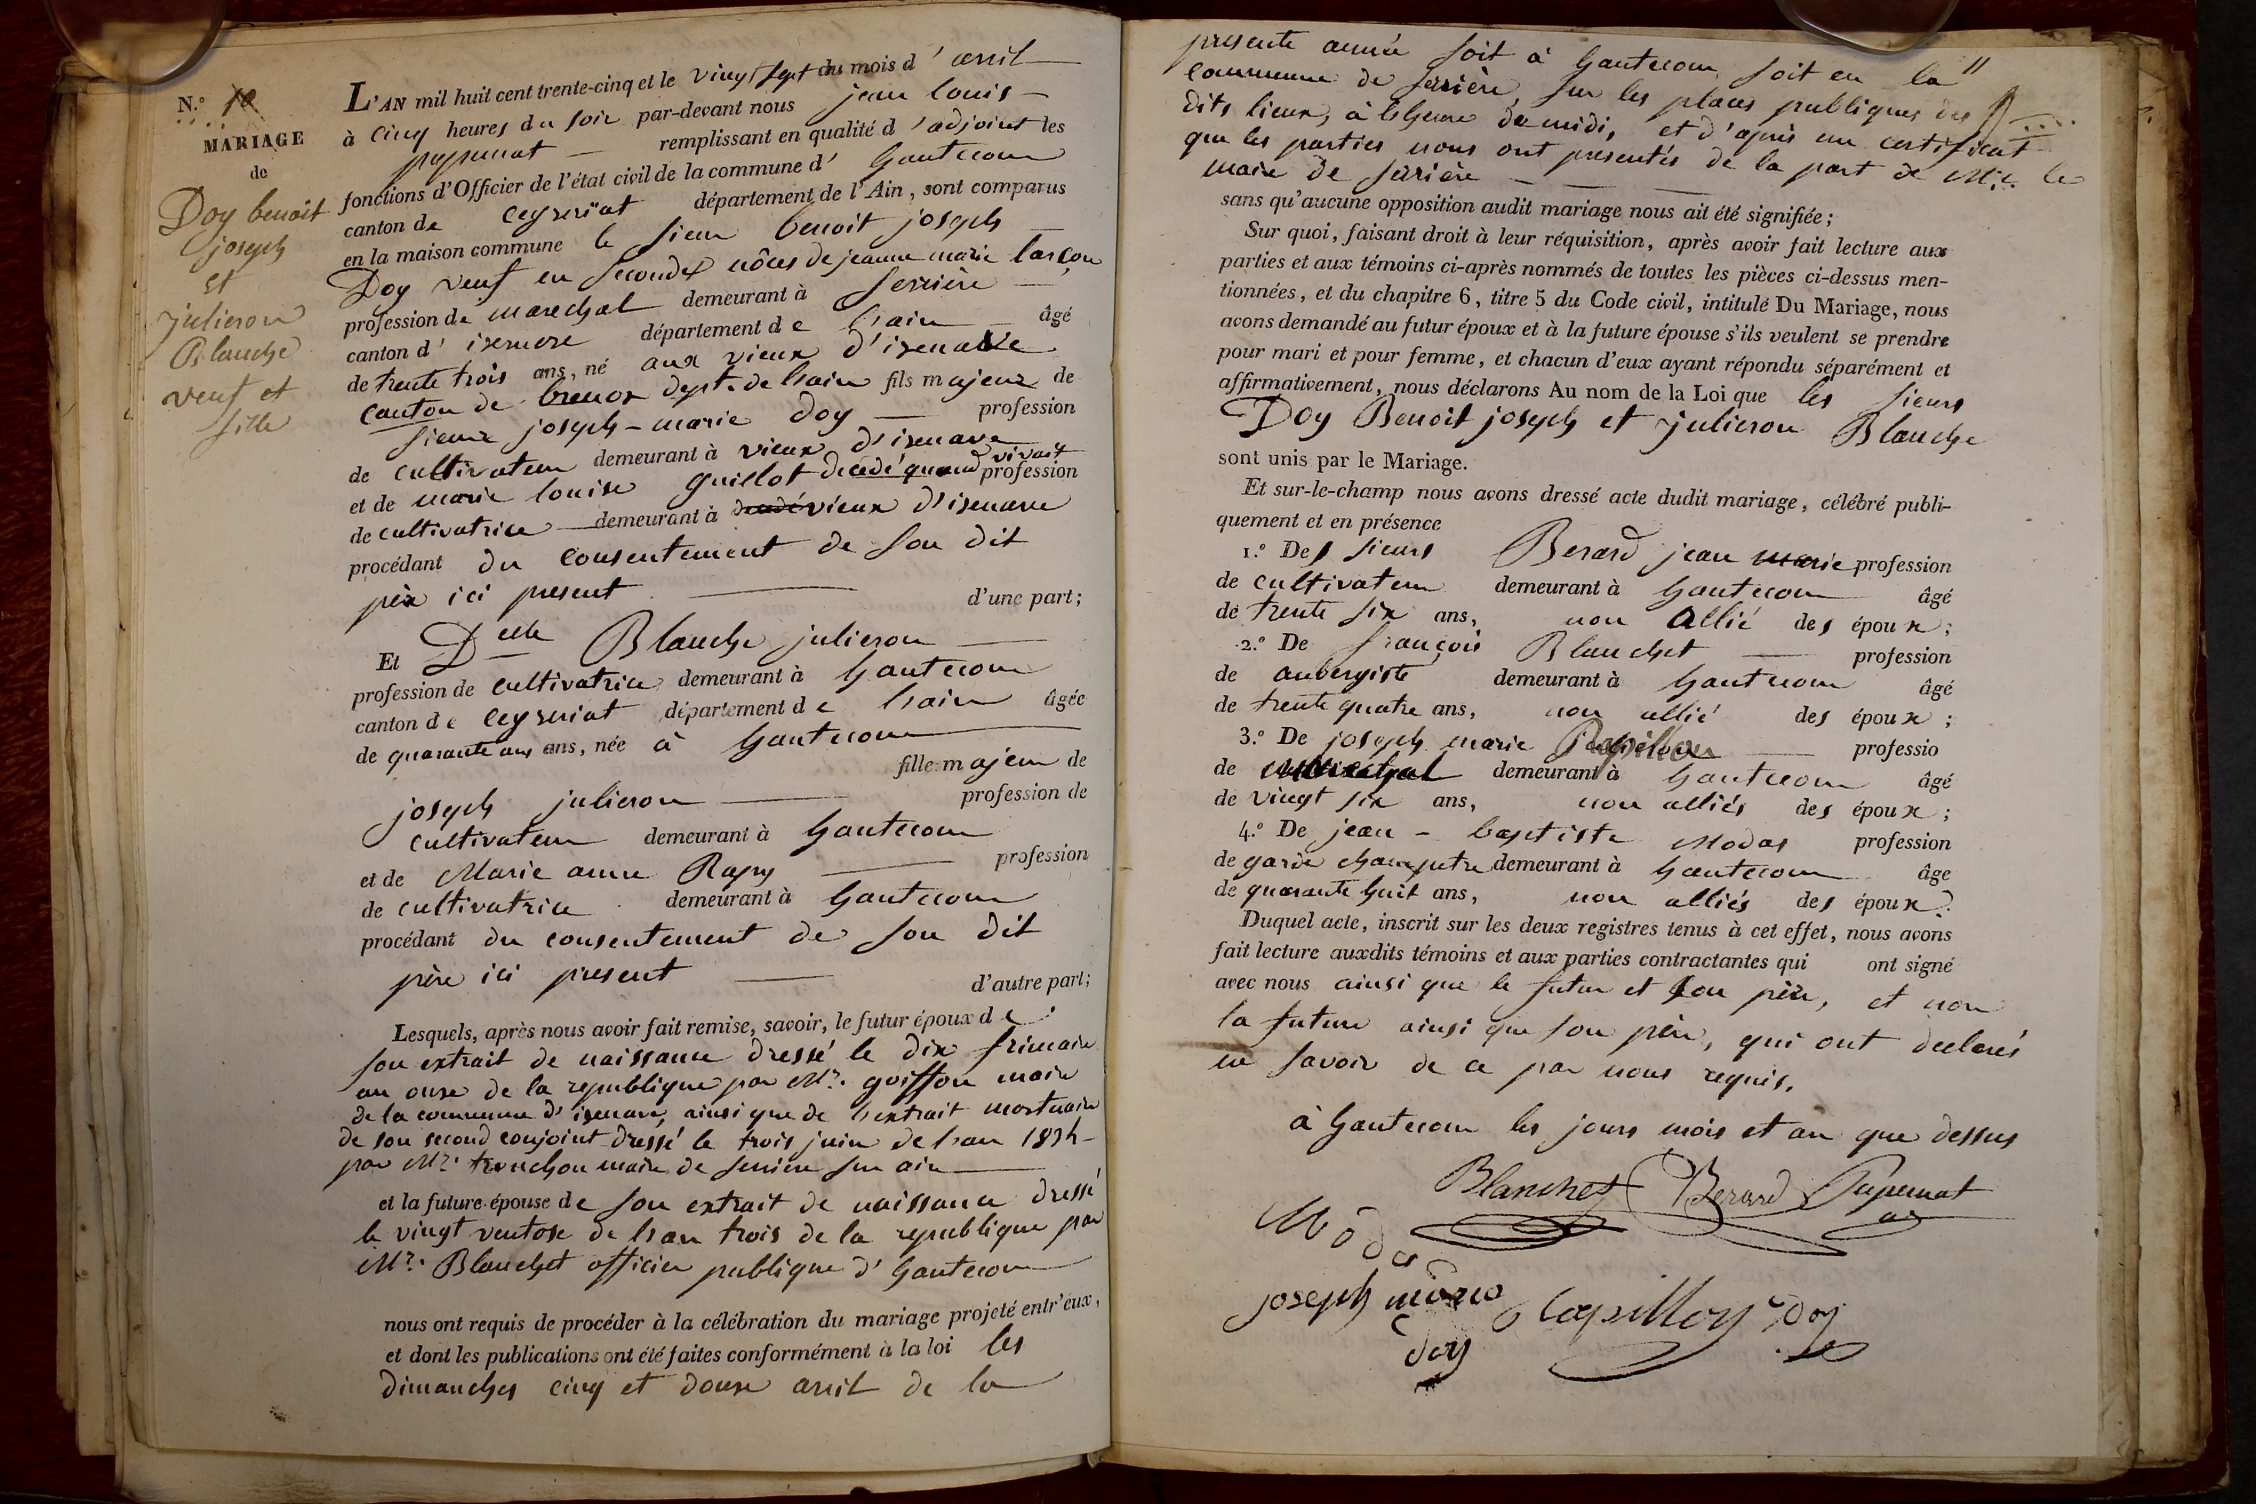 N.° 10
MARIAGE
de
Doy benoit
joseph
et
julieron
Blanche
veuf et
fille
L'AN mil huit cent trente-cinq et le vingt sept du mois d' avril
à cinq heures du soir par-devant nous jean louis
papunat remplissant en qualité d'adjoint les
fonctions d'Officier de l'état civil de la commune d' hautecour
canton de ceyzeriat département de l'Ain, sont comparus
en la maison commune le sieur benoit joseph
Doy veuf en secondes nôces de jeanne marie
profession de marechal demeurant à serrière
canton d' isernore département de l'ain âgé
de trente trois ans, né aux vieux d'isenave
canton de brenox dept. de l'ain fils majeur de
sieur joseph-marie doy profession
de cultivateur demeurant à vieux d'isenave
et de marie louise guillot decedé quand vivait profession
de cultivatrice demeurant à vieux d'isenave
procédant du consentement de son dit
père ici present d'une part;
Et Delle Blanche julieron
profession de cultivatrice demeurant à hautecour
canton de ceyzeriat département de l'ain âgée
de quarante ans ans, née à hautecour
fille majeur de
joseph julieron profession de
cultivateur demeurant à hautecour
et de Marie anne Rapy profession
de cultivatrice demeurant à hautecour
procédant du consentement de son dit
père ici present d'autre part;
Lesquels, après nous avoir fait remise, savoir, le futur époux de
son extrait de naissance dressé le dix frimaire
an onze de la republique par Mr. goiffon maire
de la commune d'isenave, ainsi que de l'extrait mortuaire
de son second conjoint dressé le trois juin de l'an 1834
par Mr. tronchon maire de serriere sur ain
et la future épouse de son extrait de naissance dressé
le vingt ventose de l'an trois de la republique par
Mr. Blanchet officier publique d' hautecour
nous ont requis de procéder à la célébration du mariage projeté entr'eux,
et dont les publications ont été faites conformément à la loi les
dimanches cinq et douze avril de la
presente année soit à hautecour soit en la
commune de serrière, sur les places publiques des
dits lieux, à l'heure de midi, et d'après un certificat
que les parties nous ont presentés de la part de Mr. le
maire de serrière
sans qu'aucune opposition audit mariage nous ait été signifiée;
Sur quoi, faisant droit à leur réquisition, après avoir fait lecture aux
parties et aux témoins ci-après nommés de toutes les pièces ci-dessus men-
tionnées, et du chapitre 6, titre 5 du Code civil, intitulé Du Mariage, nous
avons demandé au futur époux et à la future épouse s'ils veulent se prendre
pour mari et pour femme, et chacun d'eux ayant répondu séparément et
affirmativement, nous déclarons Au nom de la Loi que les sieurs
Doy Benoit joseph et julieron Blanche
sont unis par le Mariage.
Et sur-le-champ nous avons dressé acte dudit mariage, célébré publi-
quement et en présence
1.° Des sieurs Berard jean marie profession
de cultivateur demeurant à hautecour âgé
de trente six ans, non allié des époux;
2.° De françois Blanchet profession
de aubergiste demeurant à hautecour âgé
de trente quatre ans, non allié des époux;
3.° De joseph marie Papillon professio
de demeurant à hautecour âgé
de vingt six ans, non alliés des époux;
4.° De jean-baptiste Modas profession
de garde champetre demeurant à hautecour âge
de quarante huit ans, non alliés des époux.
Duquel acte, inscrit sur les deux registres tenus à cet effet, nous avons
fait lecture auxdits témoins et aux parties contractantes qui ont signé
avec nous ainsi que le futur et son père, et non
la future ainsi que son père, qui ont declarés
ne savoir de ce par nous requis.
à hautecour les jours mois et an que dessus
Blanchet Berard Papunat
Modas
joseph marie Papillon Doy
doy